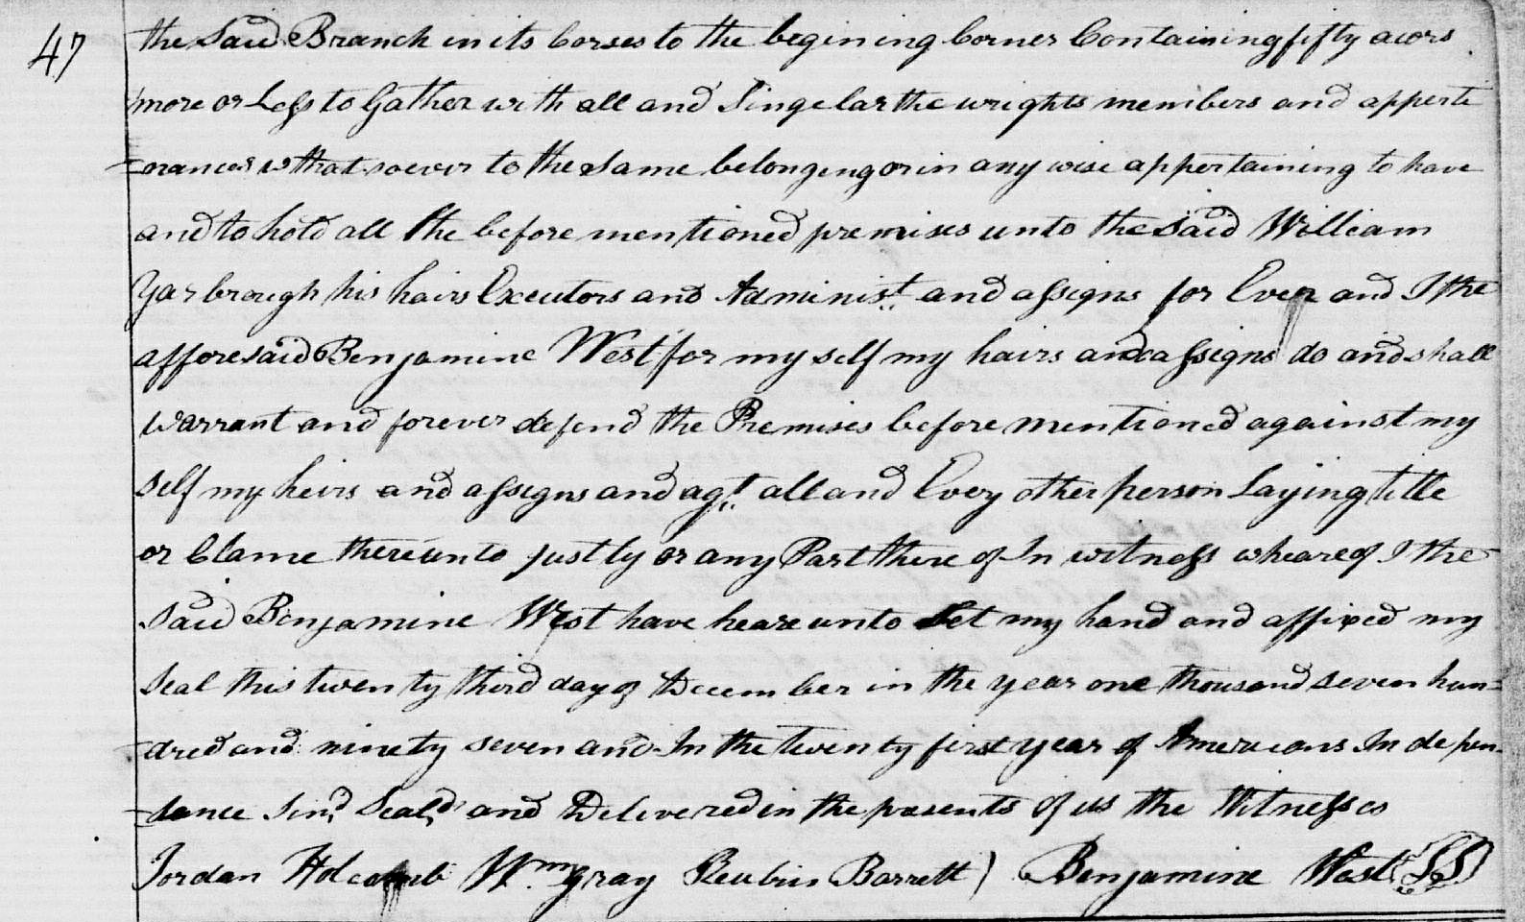 47
the Said Branch in its Corses to the begining Corner Containing fifty acors
more or Less to Gather with all and Singelar the wrights members and apperte
=nances whatsoever to the Same belonging or in any wise appertaining to have
and to hold all the before mentioned premises unto the said William
Yarbrough his hairs Executors and Administ. and assigns for Ever and I the
afforesaid Benjamine West for my self my hairs and assigns do and shall
warrant and forever defend the Premises before mentioned against my
self my heirs and assigns and agt. all and Every other person Laying title
or Clame thereunto justly or any Part there of In witness wheareof I the
said Benjamine West have heareunto Set my hand and affixed my
Seal this twenty third day of December in the year one thousand seven hun=
=dred and ninety seven and In the twenty first year of Americans Indepen=
=dance Sind. Seald. and Delivered in the presents of us the Witnesses
Jordan Holcomb Wm. Gray Reubin Barrett ) Benjamine West LS